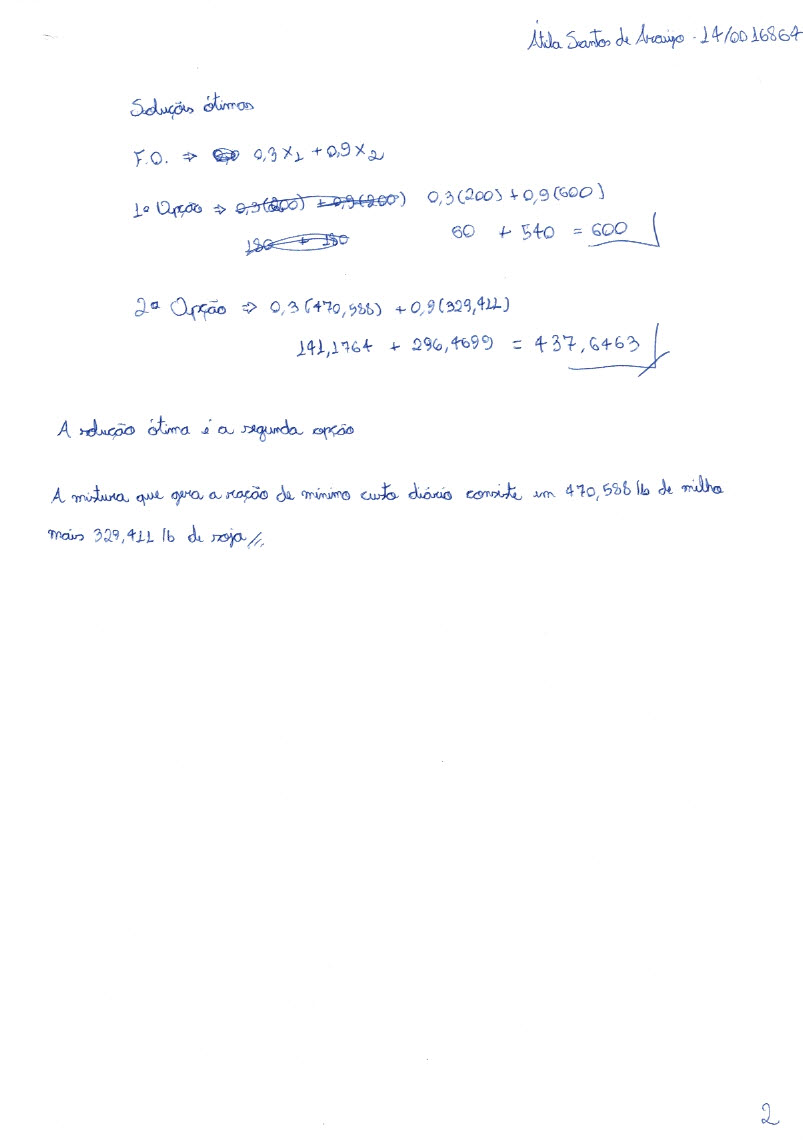 Átila Santos de Araujo - 14/0016864
Soluções ótimas
F.O. ⇒ 0,3 x1 + 0,9 x2
1ª Opção ⇒ 0,3(200) + 0,9(600)
60 + 540 = 600
2ª Opção ⇒ 0,3(470,588) + 0,9(329,411)
141,1764 + 296,4699 = 437,6463
A solução ótima é a segunda opção
A mistura que gera a ração de mínimo custo diário consiste em 470,588 lb de milho
mais 329,411 lb de soja //.
2